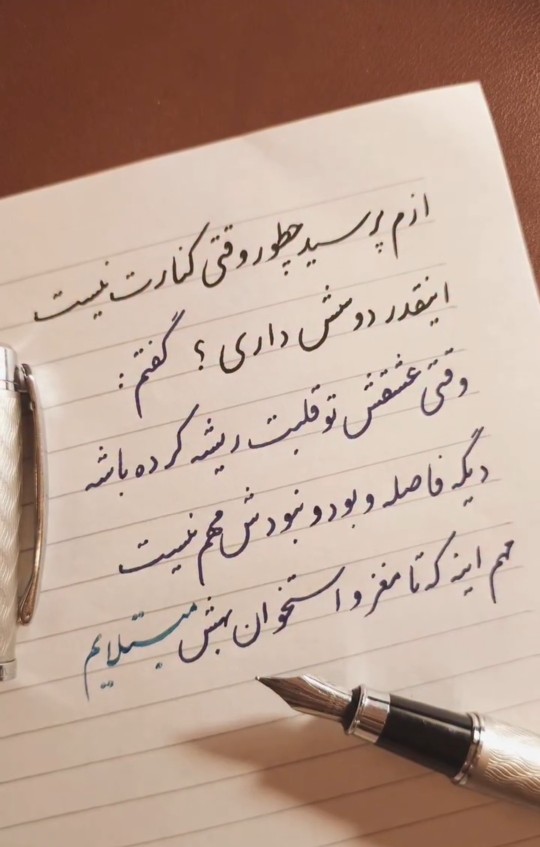 ازم پرسید چطور وقتی کنارت نیست
اینقدر دوسش داری ؟ گفتم :
وقتی عشقش تو قلبت ریشه کرده باشه
دیگه فاصله و بود و نبودش مهم نیست
مهم اینه که تا مغز و استخوان بهش مبتلایم